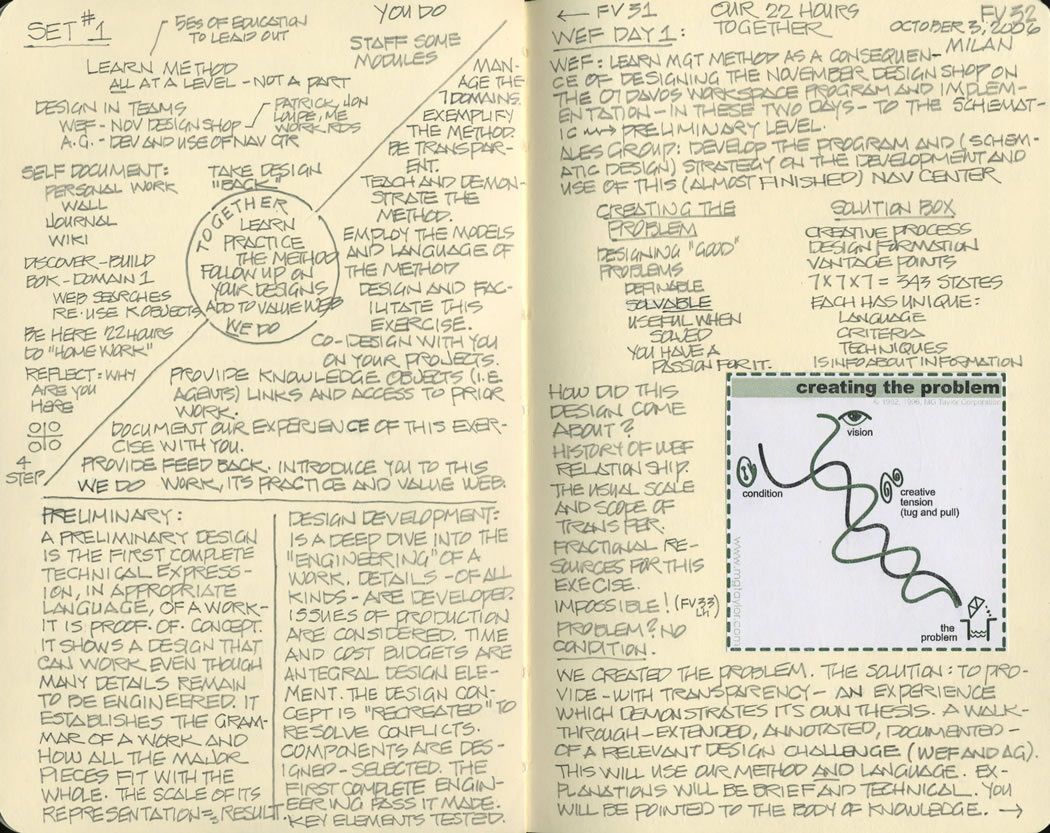 SET #1
5ES OF EDUCATION
TO LEAD OUT
YOU DO
STAFF SOME
MODULES
LEARN METHOD
ALL AT A LEVEL - NOT A PART
DESIGN IN TEAMS
WEF - NOV DESIGN SHOP
A.G. - DEV AND USE OF NAV CTR
PATRICK, JON
LOUPE, ME
WORK.RDS
SELF DOCUMENT:
PERSONAL WORK
WALL
JOURNAL
WIKI
TAKE DESIGN
"BACK"
DISCOVER-BUILD
BOK-DOMAIN 1
WEB SEARCHES
RE-USE KOBJECTS
BE HERE 22HOURS
DO "HOME WORK"
REFLECT: WHY
ARE YOU
HERE
4
STEP
TOGETHER
LEARN
PRACTICE
THE METHOD
FOLLOW UP ON
YOUR DESIGNS
ADD TO VALUE WEB
WE DO
MAN-
AGE THE
7DOMAINS.
EXEMPLIFY
THE METHOD.
BE TRANSPAR-
ENT.
TEACH AND DEMON-
STRATE THE
METHOD.
EMPLOY THE MODELS
AND LANGUAGE OF
THE METHOD
DESIGN AND FAC-
ILITATE THIS
EXERCISE.
CO-DESIGN WITH YOU
ON YOUR PROJECTS.
PROVIDE KNOWLEDGE OBJECTS (I.E.
AGENTS) LINKS AND ACCESS TO PRIOR
WORK.
DOCUMENT OUR EXPERIENCE OF THIS EXER-
CISE WITH YOU.
PROVIDE FEED BACK. INTRODUCE YOU TO THIS
WE DO WORK, ITS PRACTICE AND VALUE WEB.
PRELIMINARY:
A PRELIMINARY DESIGN
IS THE FIRST COMPLETE
TECHNICAL EXPRESS-
ION, IN APPROPRIATE
LANGUAGE, OF A WORK-
IT IS PROOF. OF. CONCEPT.
IT SHOWS A DESIGN THAT
CAN WORK EVEN THOUGH
MANY DETAILS REMAIN
TO BE ENGINEERED. IT
ESTABLISHES THE GRAM-
MAR OF A WORK AND
HOW ALL THE MAJOR
PIECES FIT WITH THE
WHOLE. THE SCALE OF ITS
REPRESENTATION = RESULT.
DESIGN DEVELOPMENT:
IS A DEEP DIVE INTO THE
"ENGINEERING" OF A
WORK. DETAILS - OF ALL
KINDS - ARE DEVELOPED.
ISSUES OF PRODUCTION
ARE CONSIDERED. TIME
AND COST BUDGETS ARE
ANTEGRAL DESIGN ELE-
MENT. THE DESIGN CON-
CEPT IS "RECREATED" TO
RESOLVE CONFLICTS.
COMPONENTS ARE DES-
IGNED - SELECTED. THE
FIRST COMPLETE ENGIN-
EERING PASS IT MADE.
KEY ELEMENTS TESTED.
← FV 31
OUR 22 HOURS
TOGETHER
FV 32
OCTOBER 3, 2006
MILAN
WEF DAY 1:
WEF: LEARN MGT METHOD AS A CONSEQUEN-
CE OF DESIGNING THE NOVEMBER DESIGN SHOP ON
THE 07 DAVOS WORKSPACE PROGRAM AND IMPLEM-
ENTATION - IN THESE TWO DAYS - TO THE SCHEMAT-
IC → PRELIMINARY LEVEL.
ALES GROUP: DEVELOP THE PROGRAM AND (SCHEM-
ATIC DESIGN) STRATEGY ON THE DEVELOPMENT AND
USE OF THIS (ALMOST FINISHED) NAV CENTER
CREATING THE
PROBLEM
DESIGNING "GOOD"
PROBLEMS
DEFINABLE
SOLVABLE
USEFUL WHEN
SOLVED
YOU HAVE A
PASSION FOR IT.
SOLUTION BOX
CREATIVE PROCESS
DESIGN FORMATION
VANTAGE POINTS
7 X 7 X 7 = 343 STATES
EACH HAS UNIQUE:
LANGUAGE
CRITERIA
TECHNIQUES
IS INFO ABOUT INFORMATION
HOW DID THIS
DESIGN COME
ABOUT?
HISTORY OF WEF
RELATIONSHIP.
THE USUAL SCALE
AND SCOPE OF
TRANSFER.
FRACTIONAL RE-
SOURCES FOR THIS
EXECISE.
IMPOSSIBLE! (FV33 LH)
PROBLEM? NO
CONDITION.
creating the problem
© 1982, 1996, MG Taylor Corporation
vision
condition
creative
tension
(tug and pull)
the
problem
www.mgtaylor.com
WE CREATED THE PROBLEM. THE SOLUTION: TO PRO-
VIDE - WITH TRANSPARENCY - AN EXPERIENCE
WHICH DEMONSTRATES ITS OWN THESIS. A WALK-
THROUGH - EXTENDED, ANNOTATED, DOCUMENTED -
OF A RELEVANT DESIGN CHALLENGE (WEF AND AG).
THIS WILL USE OUR METHOD AND LANGUAGE. EX-
PLANATIONS WILL BE BRIEF AND TECHNICAL. YOU
WILL BE POINTED TO THE BODY OF KNOWLEDGE. →